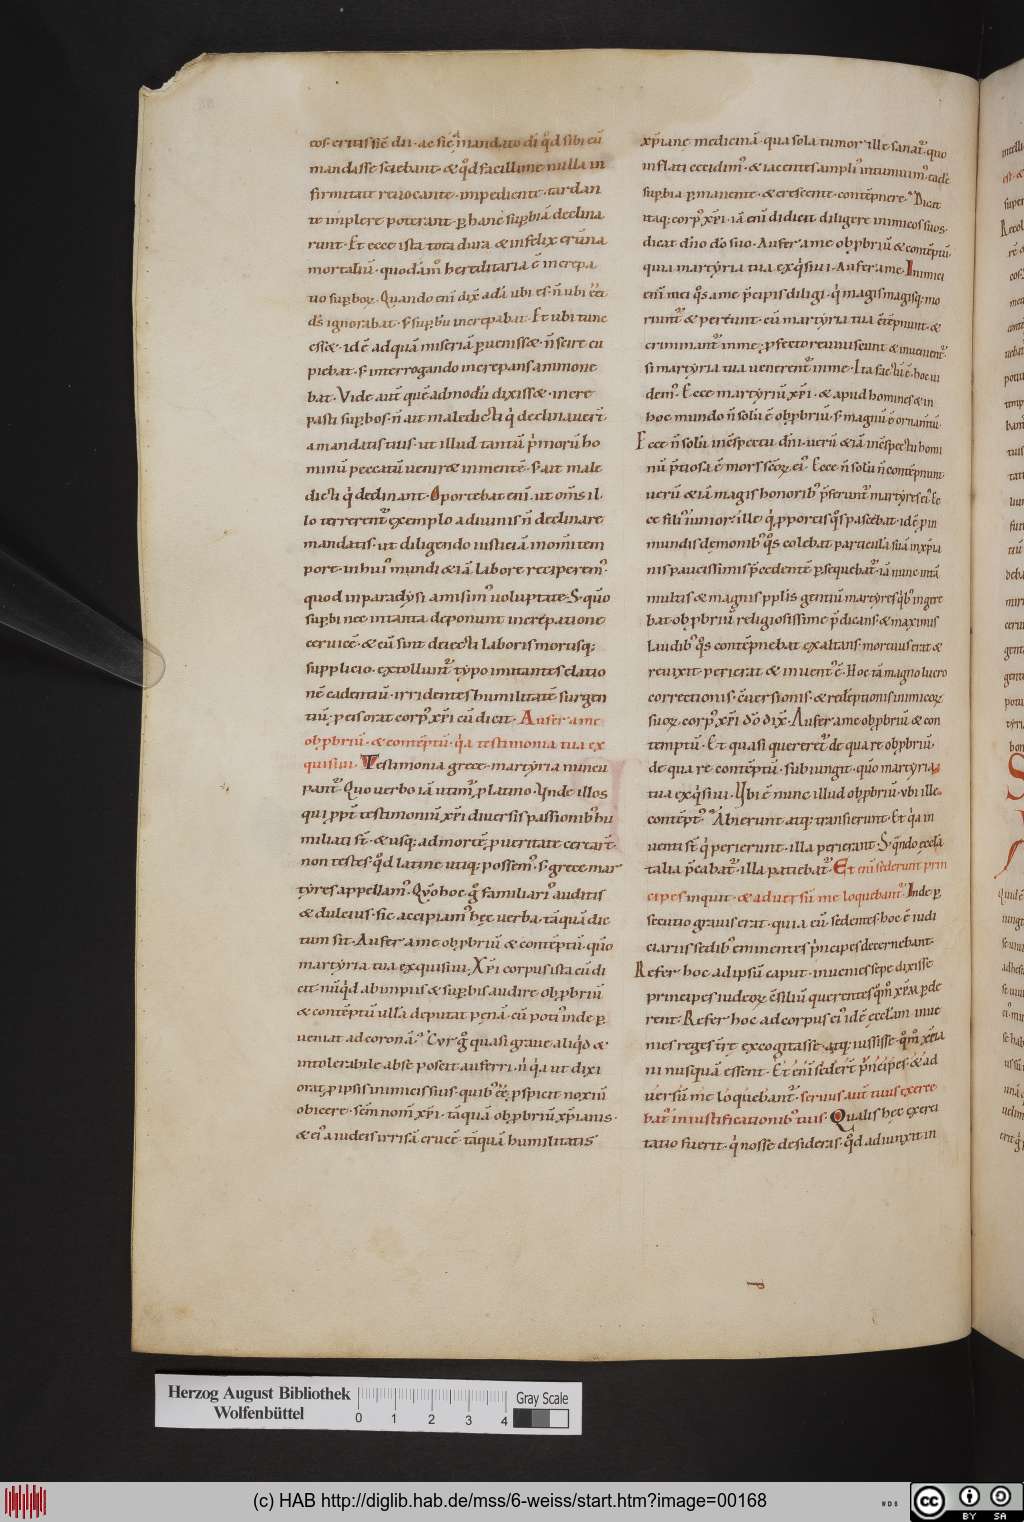 eos· eritis sic̄ dii· ac sic̄ mandato dī q̄d sibi eū
mandasse sciebant· & q̄d facillime nulla in
firmitate reuocante· impediente· tardan
te implere poterant· ꝑ hanc supbiā declina
runt· Et ecce ista tota dura & infelix erūna
mortaliū· quodāmō hereditaria ē increpa
tio supboꝝ· Quando eni dix̄ adā ubi es· n̄ ubi eēt
dꝰ ignorabat· s; supbū increpabat· Et ubi tunc
ess&· id ē ad quā miseriā puenisse· n̄ scire cu
piebat· s; interrogando increpans ammone
bat· Vide aut̄ quē admodū dixiss&· incre
pasti supbos· n̄ ait maledicti q̇ declinauert̄·
a mandatis tuis· ut illud tantū pmorū ho
minū peccatū uenir& in mentē· s; ait male
dicti q̇ declinant· Oportebat eni· ut om̄s il
lo terrerent exemplo a diuinis n̄ declinare
mandatis· ut diligendo iusticiā in om̄i tem
pore· in huiꝰ mundi & iā labore reciperemꝰ·
quod in paradysi amisimꝰ uoluptate· S; quō
supbi nec in tanta deponunt increpatione
ceruicē· & cū sint deiecti laboris mortisq;
supplicio· extollunt typo imitantes elatio
nē cadentiū· irridentes humilitatē surgen
tiū· pcis orat corpꝰ xp̄i cū dicit· Aufer a me
obpbriū· & contēptū· q̇a testimonia tua ex
quisiui· Testimonia grece· martyria nuncu
pant· Quo uerbo iā utimur p latino· Vnde illos
qui ppt̄ testimoniū xp̄i diuersis passionibꝰ hu
miliati st̄· & usq; ad mortē p ueritate certart̄·
non testes· q̄d latine utiq; possemꝰ· s; grece mar
tyres appellamꝰ· Qūo hoc g̊ familiariꝰ auditis
& dulcius· sic accipiamꝰ hęc uerba· tāquā dic
tum sit· Aufer a me obpbriū & contēptū· quō
martyria tua exquisiui· Xp̄i corpus ista cū di
cit· nūq̇d ab impiis & supbis audire obpbriū
& contēptū ulla deputat pęnā· cū potiꝰ inde ꝑ
ueniat ad coronā· Cur g̊ quasi graue aliq̇d &
intolerabile ab se poscit auferri· n̄ q̇a ut dixi
orat p ipsis inimicis suis· quibꝰ eē pspicit noxiū
obicere· sc̄m nom̄ xp̄i· tāquā obpbriū xp̄ianis·
& eiꝰ a iudeis irrisā crucē· tāquā humilitatis
xp̄iane medicinā· qua sola tumor ille sanat· quo
inflati cecidimꝰ· & iacentes ampliꝰ intumuimꝰ·
supbia pmanente· & crescente· contēpnere· Dicit
itaq; corpꝰ xp̄i· iā eni didicit diligere inimicos suos·
dicat dn̄o dō suo· Aufer a me obpbriū & contēptū·
quia martyria tua exq̇siui· Aufer a me· Inimici
eni mei q̊s a me pcipis diligi· q̇ magis magisq; mo
riunt & pereunt· cū martyria tua cōtēpnunt· &
criminant in me; pfecto reuiuiscunt & inuenient·
si martyria tua uenerent in me· Ita factū ē· hoc ui
demꝰ· Ecce martyriū xp̄i· & apud homines & in
hoc mundo n̄ solū ē obpbriū· s; magnū ē ornam̄tū·
Ecce n̄ solū in cōspectu dn̄i· uerū & iā in cōspectu homi
nū p̄tiosa ē mors sc̄oꝝ eiꝰ· Ecce n̄ solū n̄ contēpnunt
uerū & iā magis honoribꝰ pferunt martyres eiꝰ· Ec
ce filiꝰ iunior ille· q̇ pporcis q̊s pascebat· id ē p in
mundis demonibꝰ q̊s colebat particula suā in xp̄ia
nis paucissimis p̄cedentē psequebat· iā nunc intā
multis & magnis pplis gentiū martyres q̇bꝰ ingere
bat obpbriū religiosissime p̄dicans· & maximis
laudibꝰ q̊s contēpnebat exaltans· mortuus erat &
reuixit· perierat & inuentꝰ ē· Hoc iā magno lucro
correctionis· cōuersionis· & redēptionis inimicoꝝ
suoꝝ· corpꝰ xp̄i dō dix̄· Aufer a me obpbriū & con
temptū· Et quasi quereret de qua re obpbriū·
de qua re contēptū· subiungit· quō martyria
tua exq̇siui· Vbi ē nunc illud obpbriū· ubi ille
contēptꝰ· Abierunt atq; transierunt· Et q̇a in
uenti st̄ q̇ perierunt· illa perierant· S; q̄ndo ęccl̄a
talia p̄cabat· illa patiebat· Et eni sederunt prin
cipes inquit· & aduersū me loquebant· Inde ꝑ
secutio grauis erat· quia cū sedentes· hoc ē iudi
ciariis sedibꝰ eminentes ṗncipes decernebant·
Refer hoc ad ipsū caput· inuenies sepe dixisse
principes iudeoꝝ cōsiliū querentes q̄m̄ xp̄m pde
rent· Refer hoc ad corpus eiꝰ id ē eccl̄am· inue
nies reges tr̄ę excogitasse· atq; iussisse· q̄m̄ xp̄ia
ni nusquā essent· Et eni sedert̄ ṗncipes· & ad
uersū me loquebant· seruus aut̄ tuus exerce
bat in iustificationibꝰ tuis· Qualis hęc exerci
tatio fuerit· q̇ nosse desideras· q̄d adiunxit in
Herzog August Bibliothek
Wolfenbüttel
0 1 2 3 4
Gray Scale
(c) HAB http://diglib.hab.de/mss/6-weiss/start.htm?image=00168
WDB
cc BY SA